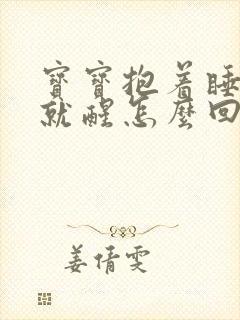 寶寶抱着睡
就醒怎麼回
姜倩雯